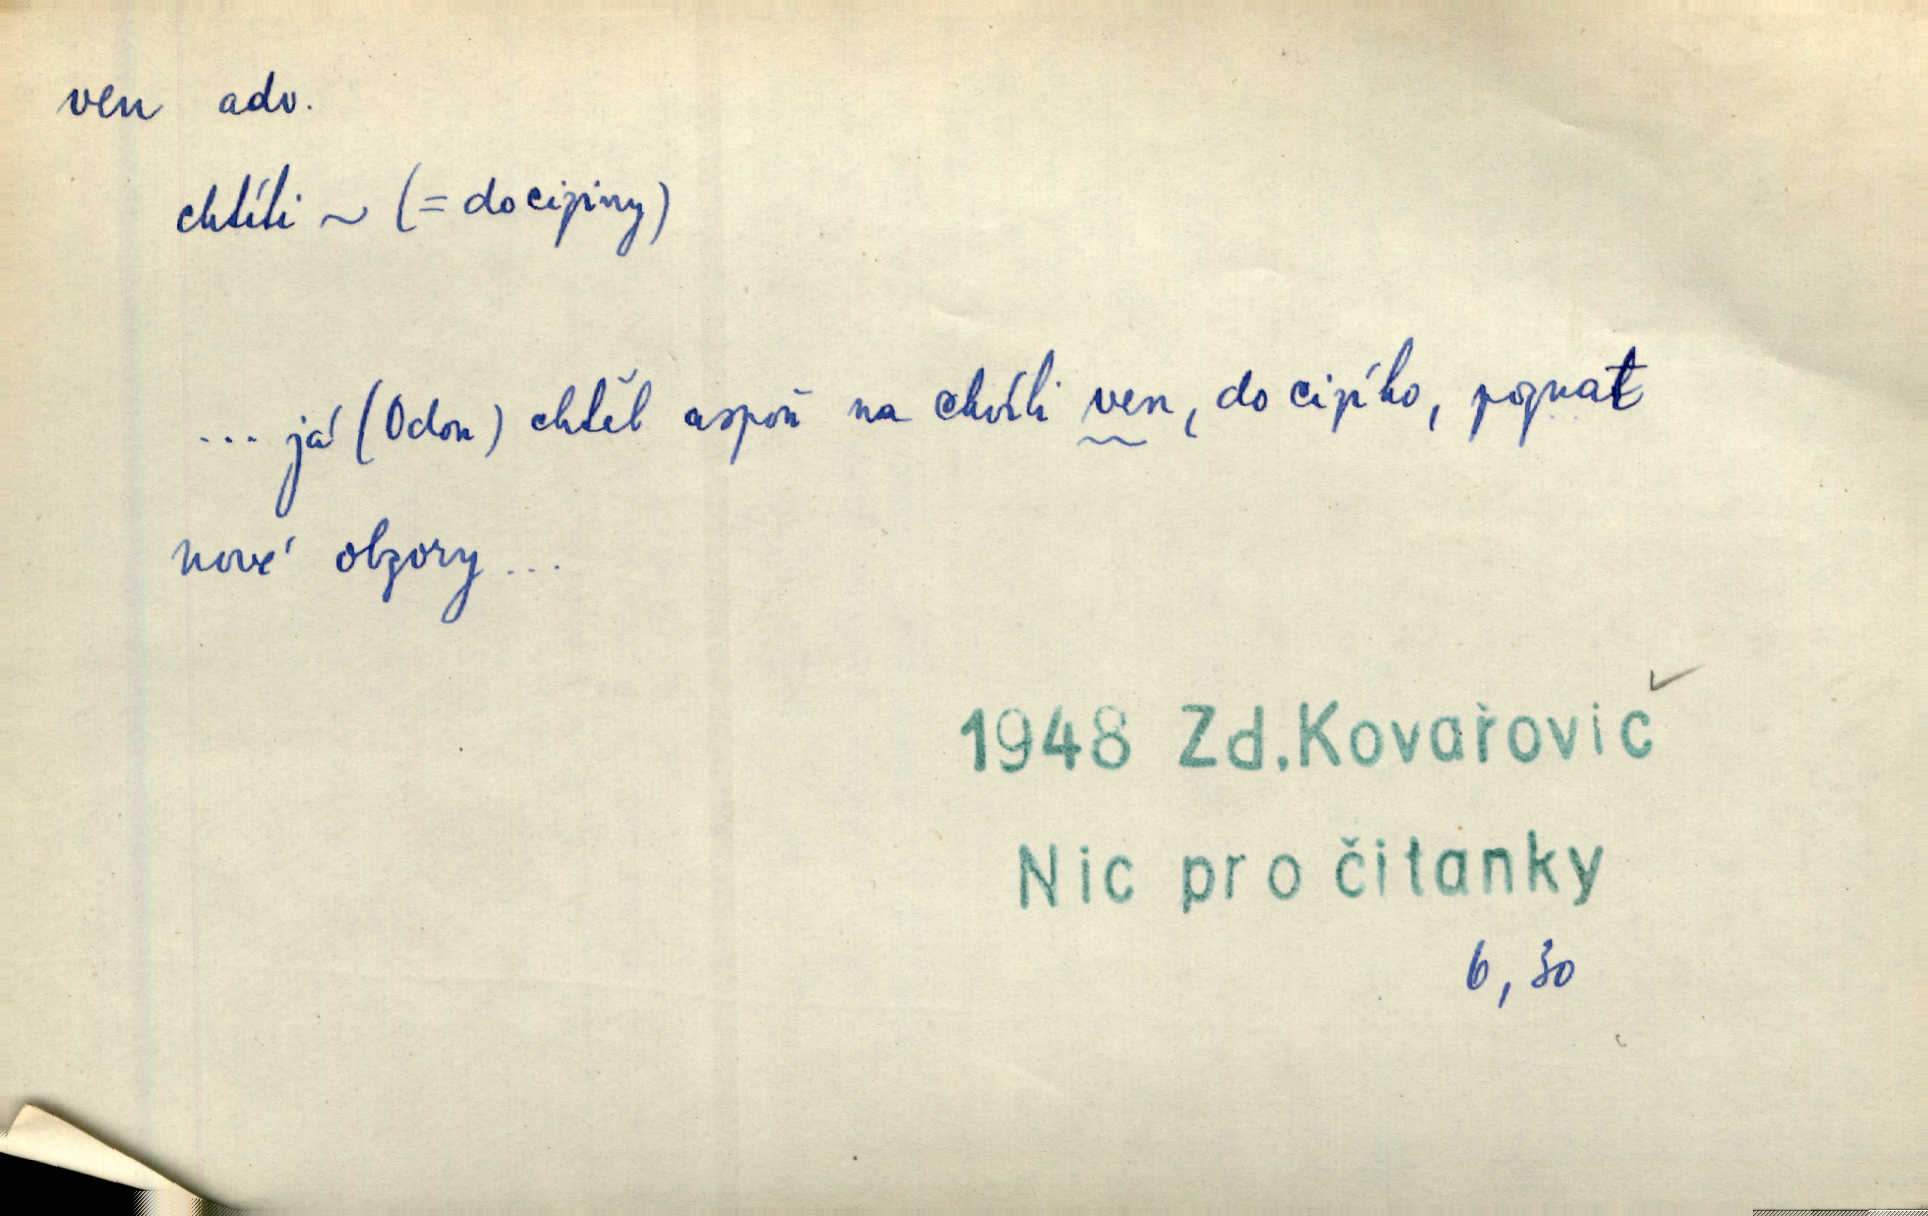 ven adv.
chtíti ~ (= do ciziny)
... já (Odon) chtěl aspoň na chvíli ven, do cizího, poznat
nové obzory ...
1948 Zd. Kovařovič
Nic pro čitanky
6, 30